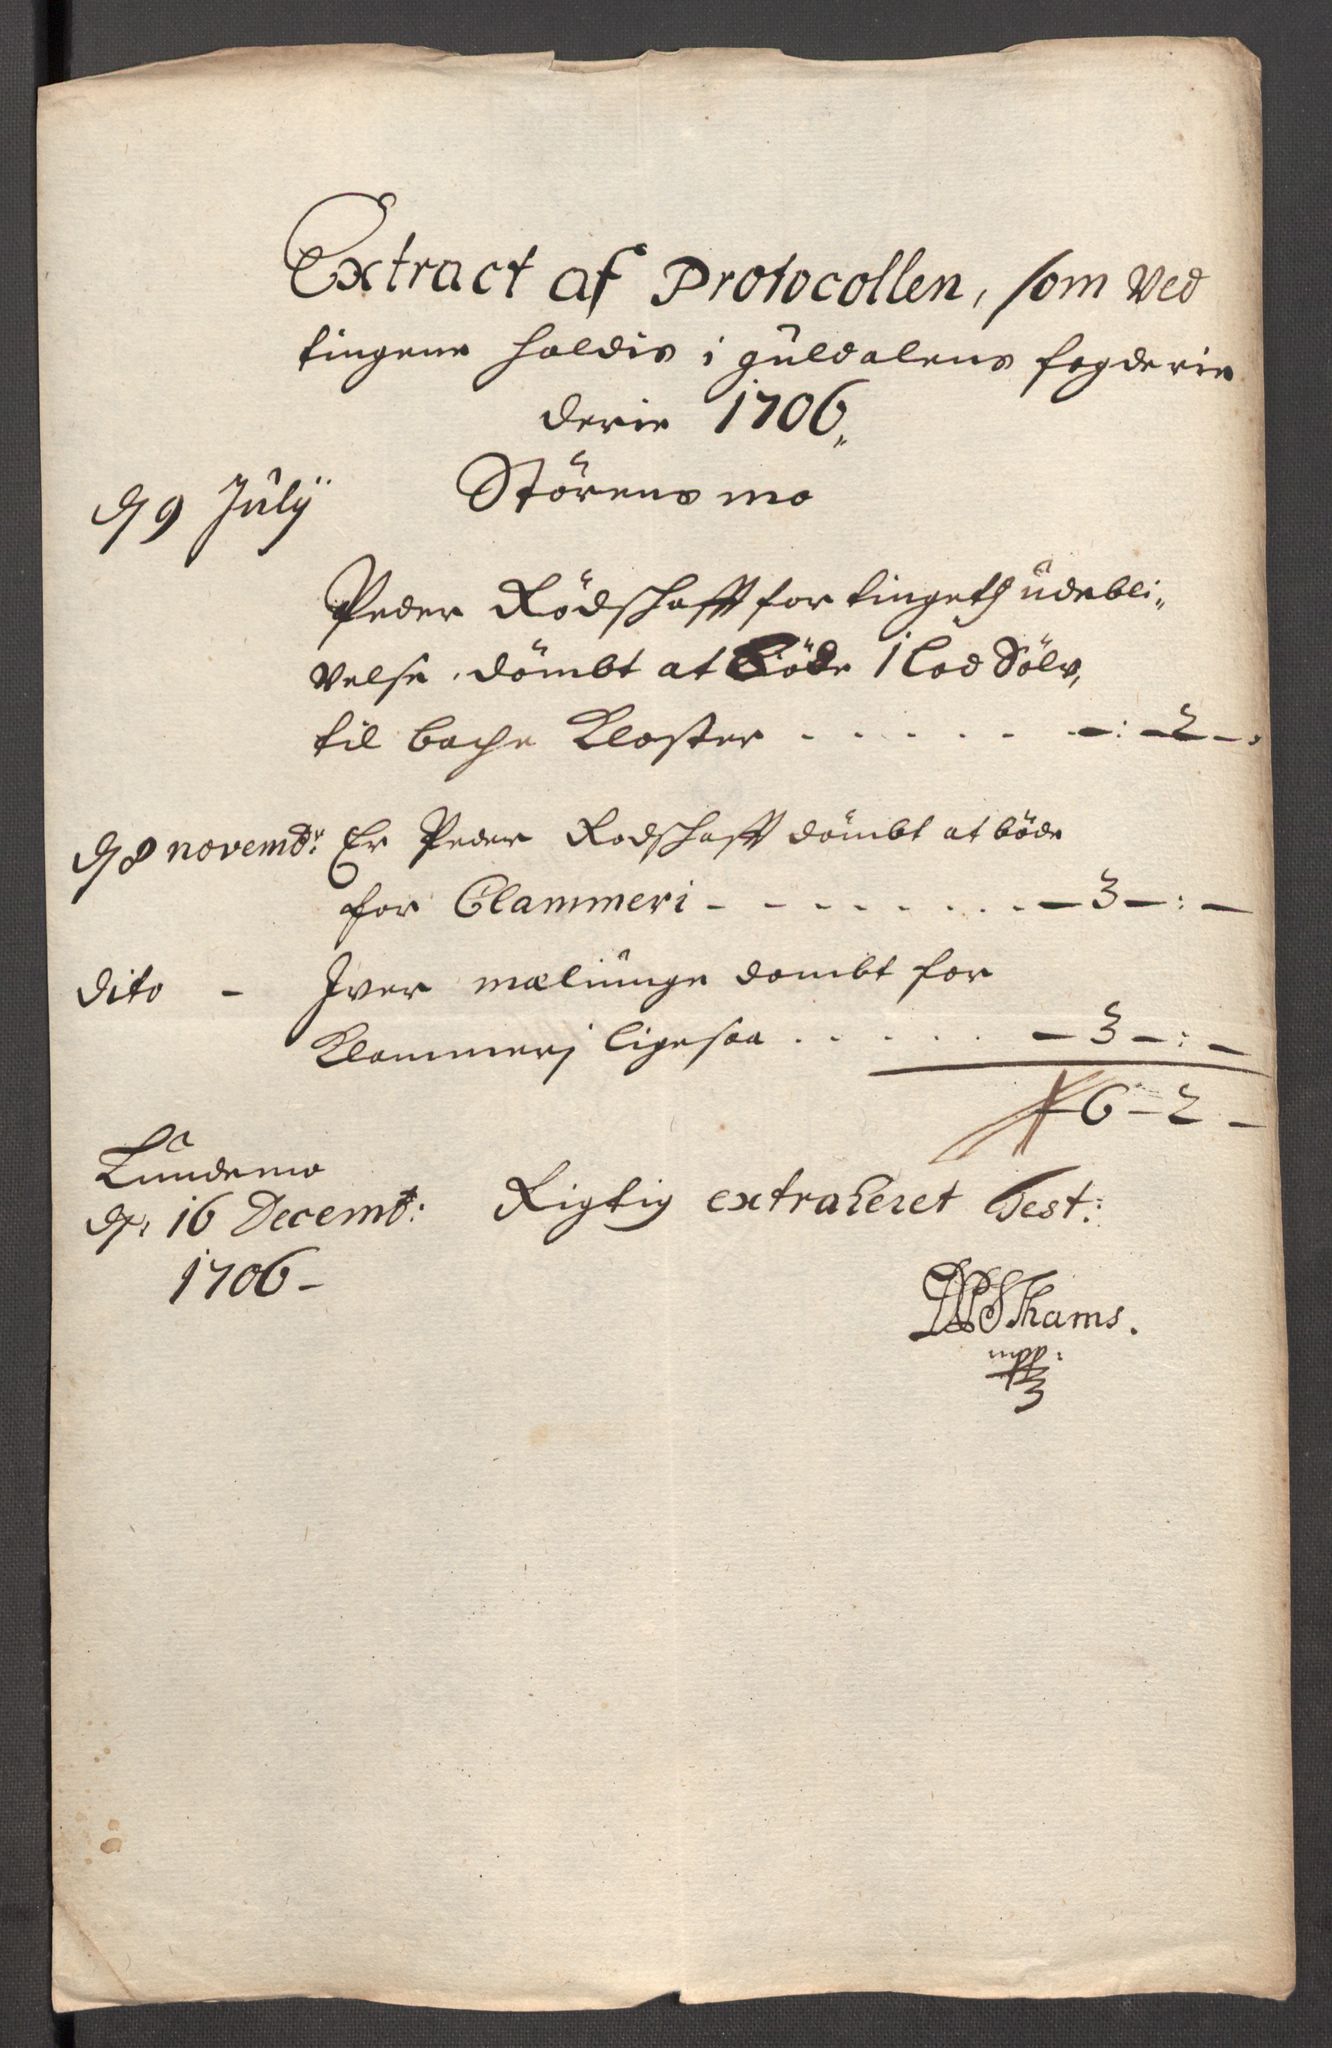 Extract af Protocollen, som Ved
tingene holdis i Guldalens fogderie
derie 1706,,
d 9 Julij Störens mo
Peder Rödschafft for tingetz udebli,,
velse dömbt at böde 1 lod Sölv,
til bache Closter . . . . . . - : - 2 - .
d 8 novembr: Er Peder Rodschafft dömbt at böde
for Clammeri - - - - . . . . . - 3 - : -
dito - Iver dombt for
Klammerj ligesaa . . . . . - 3 - : -
6 - 2 -
Lundemo
d: 16 Decemb: Rigtig extraheret Test:
1706 -
Thams.
mpp: